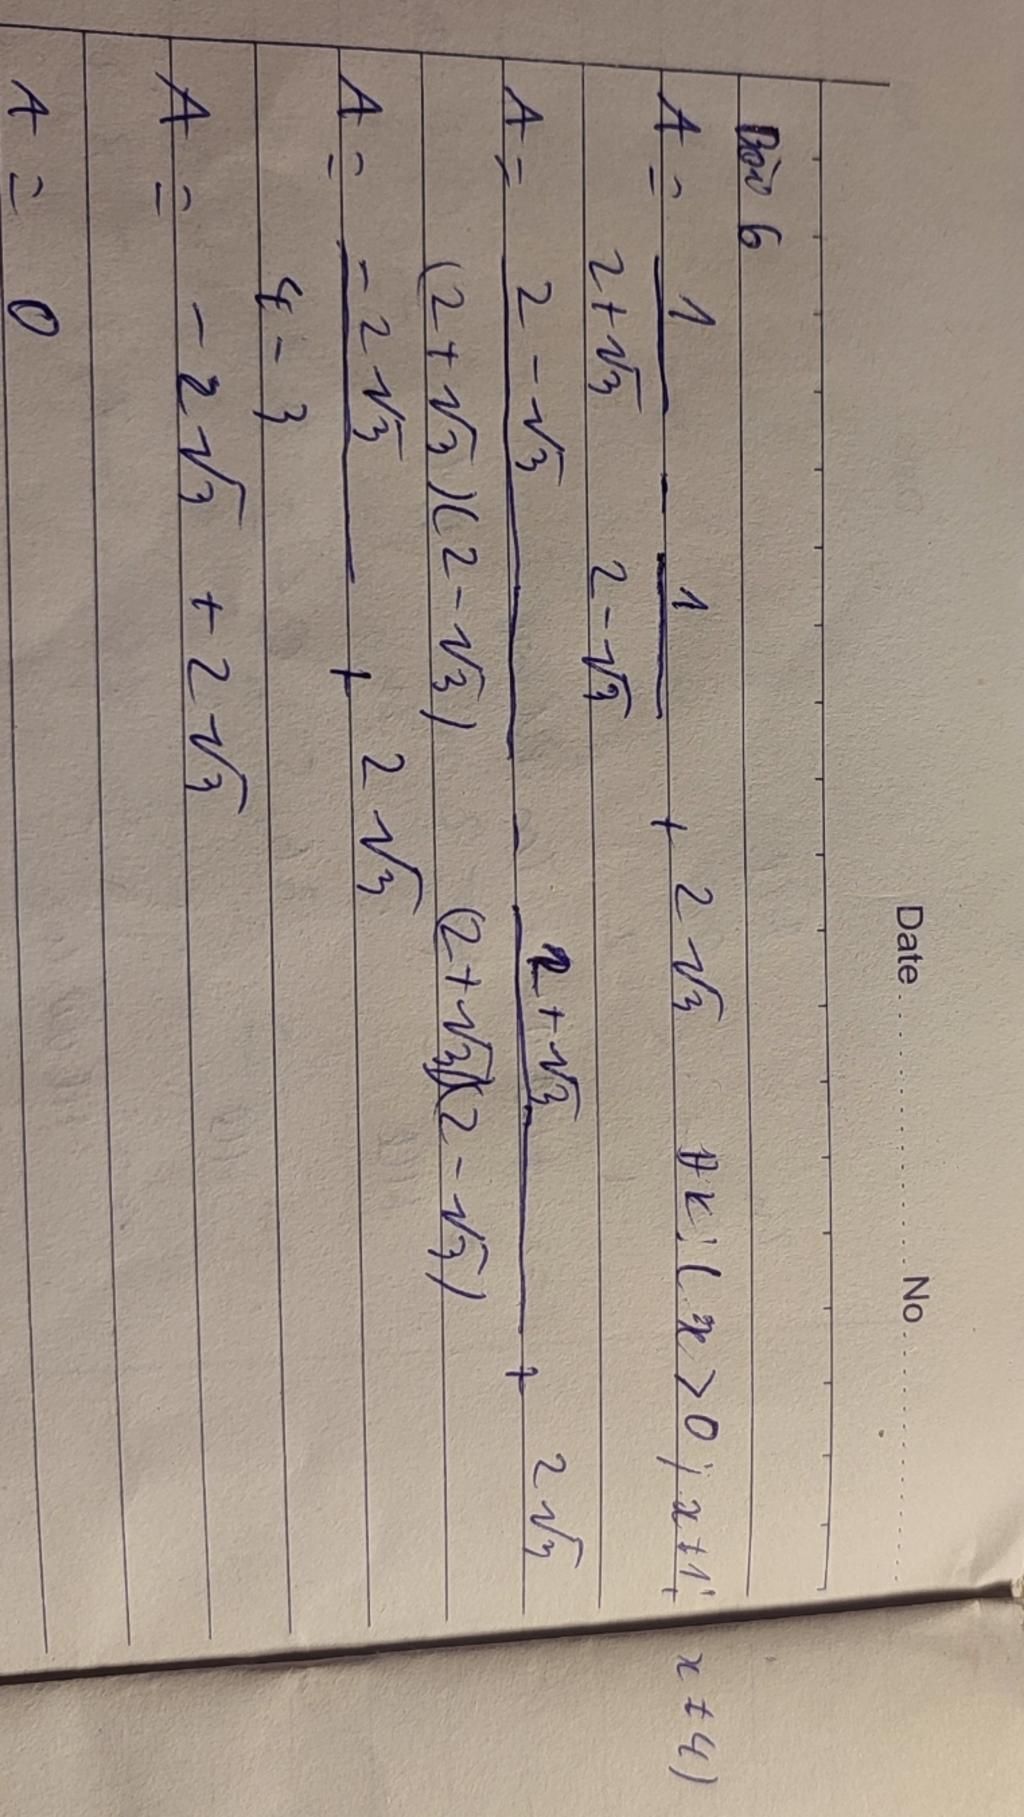 Date No
Bài 6
A = 1/(2+√3) - 1/(2-√3) + 2√3 ĐK: (x>0; x≠1; x≠4)
A = (2-√3)/((2+√3)(2-√3)) - (2+√3)/((2+√3)(2-√3)) + 2√3
A = (-2√3)/(4-3) + 2√3
A = -2√3 + 2√3
A = 0